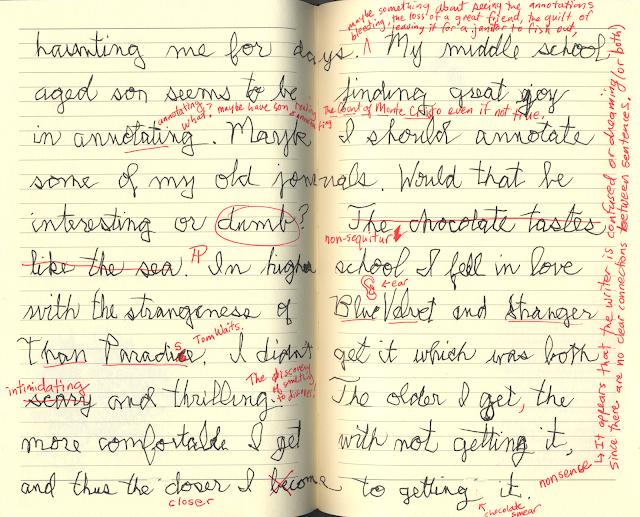 maybe something about seeing the annotations
bleeding, the loss of a great friend, the guilt of
leaving it for a janitor to fish out,
haunting me for days. ^ My middle school
aged son seems to be finding great joy
annotating what? maybe have son reading & annotating The Count of Monte Cristo even if not true.
in annotating. Maybe I should annotate
some of my old journals. Would that be
interesting or dumb? The chocolate tastes
non-sequitur
like the sea. ¶ In higher school I fell in love
← ear
with the strangeness of Blue Velvet and Stranger
Tom Waits.
Than Paradise. I didn't get it which was both
intimidating
scary and thrilling. The older I get, the
The discovery of something to discover!
more comfortable I get with not getting it,
and thus the closer I become to getting it.
closer
nonsense
↖ chocolate smear
↳ It appears that the writer is confused or dreaming (or both)
since there are no clear connections between sentences.